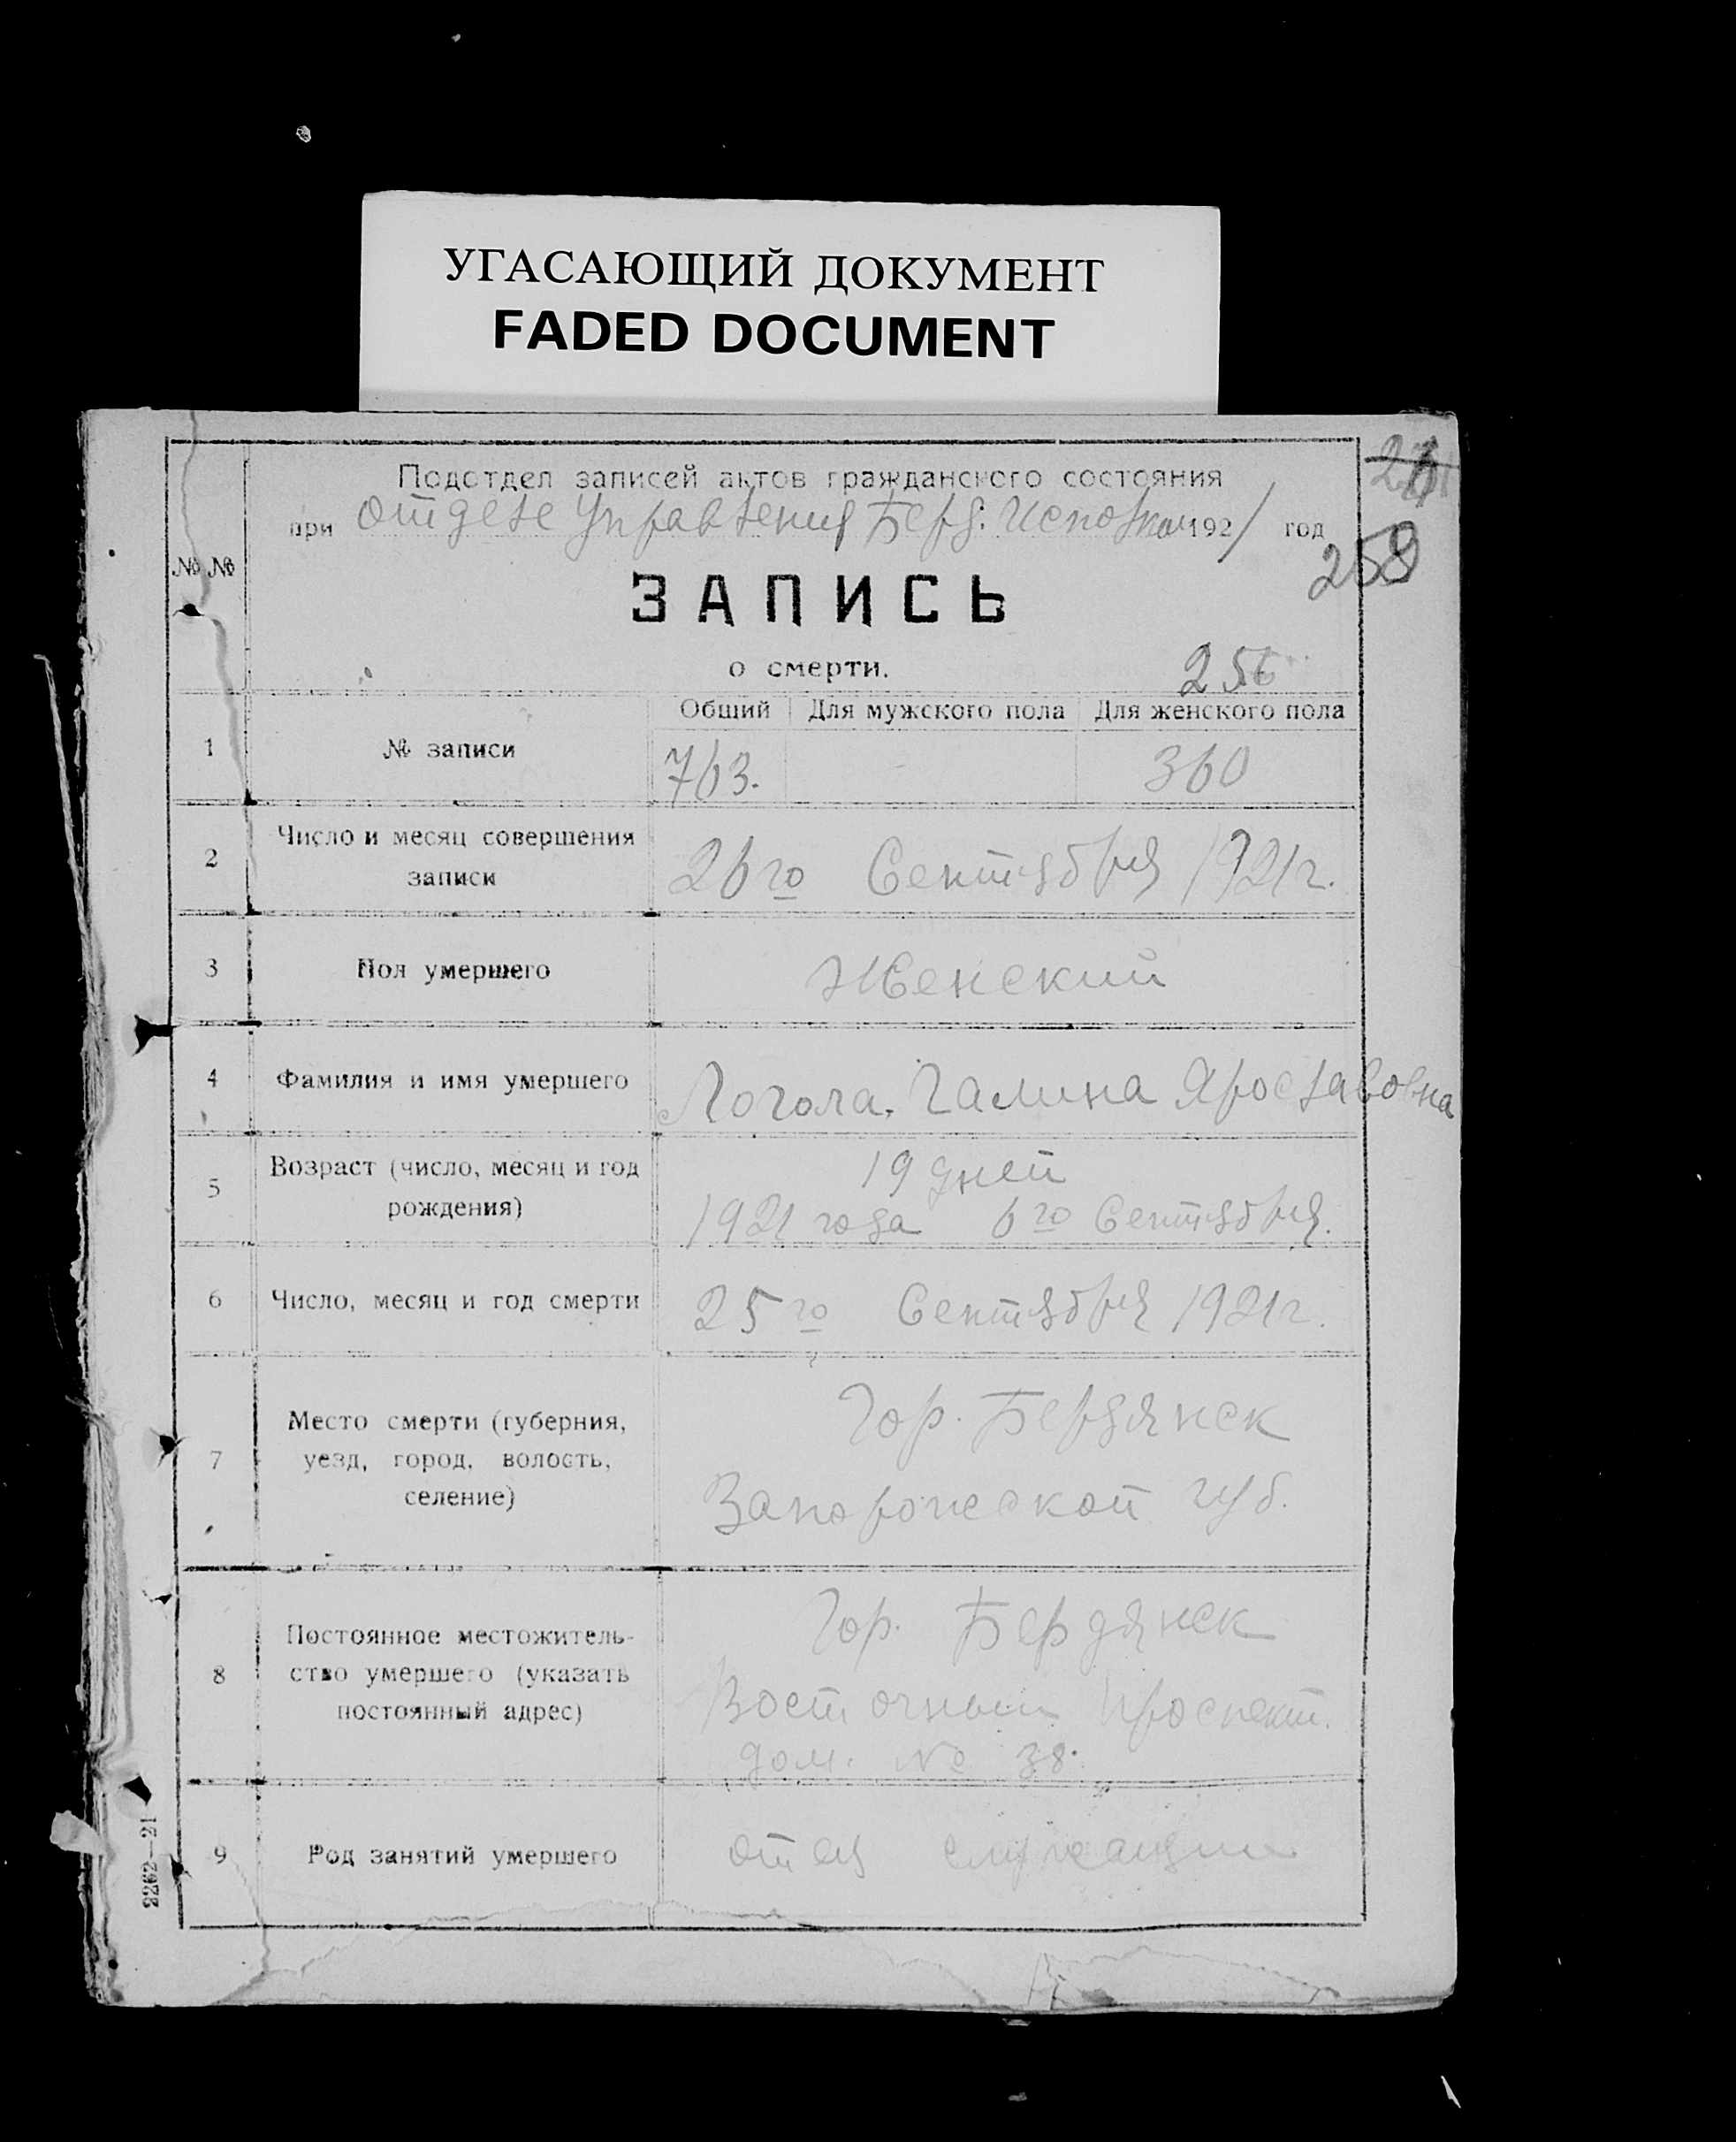 УГАСАЮЩИЙ ДОКУМЕНТ
FADED DOCUMENT
Подотдел записей актов гражданского состояния
при Отделе Управления Берд. Исполком 1921 год
259
№ №
ЗАПИСЬ
о смерти.
256
Общий Для мужского пола Для женского пола
1 № записи 763. 360
2 Число и месяц совершения
записи 26го Сентября 1921 г.
3 Пол умершего Женский
4 Фамилия и имя умершего Логола, Галина Ярославовна
5 Возраст (число, месяц и год
рождения)
19 дней
1921 года 6го Сентября.
6 Число, месяц и год смерти 25го Сентября 1921 г.
7 Место смерти (губерния,
уезд, город, волость,
селение)
Гор. Бердянск
Запорожской губ.
8 Постоянное местожитель-
ство умершего (указать
постоянный адрес)
Гор. Бердянск
Восточный проспект.
дом. № 38.
9 Род занятий умершего отец служащий
2262—21